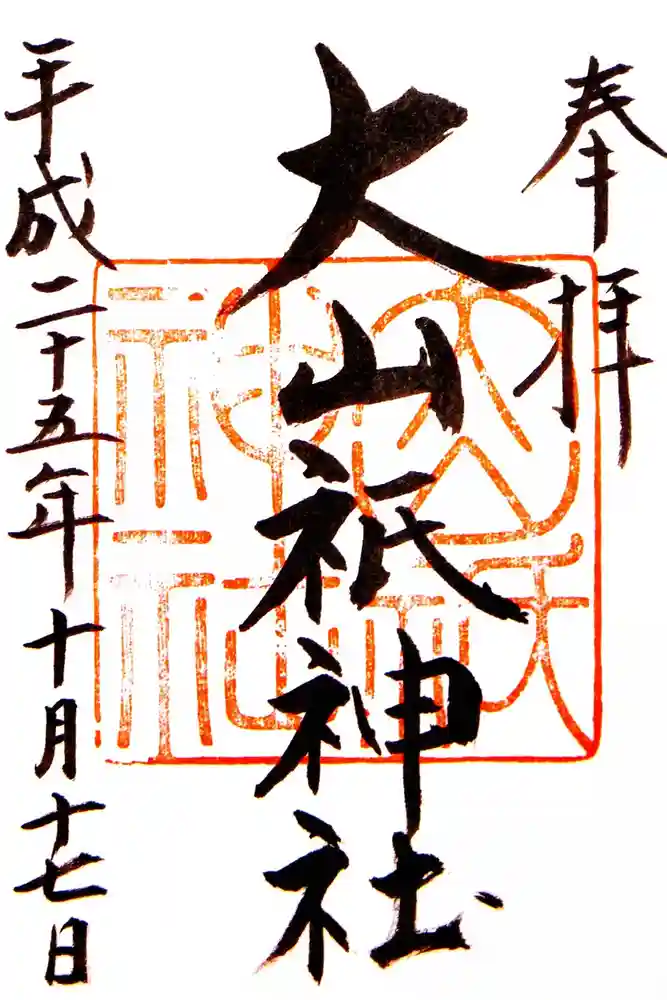 奉拝
大山祇神社
平成二十五年十月十七日
大山祇
神社